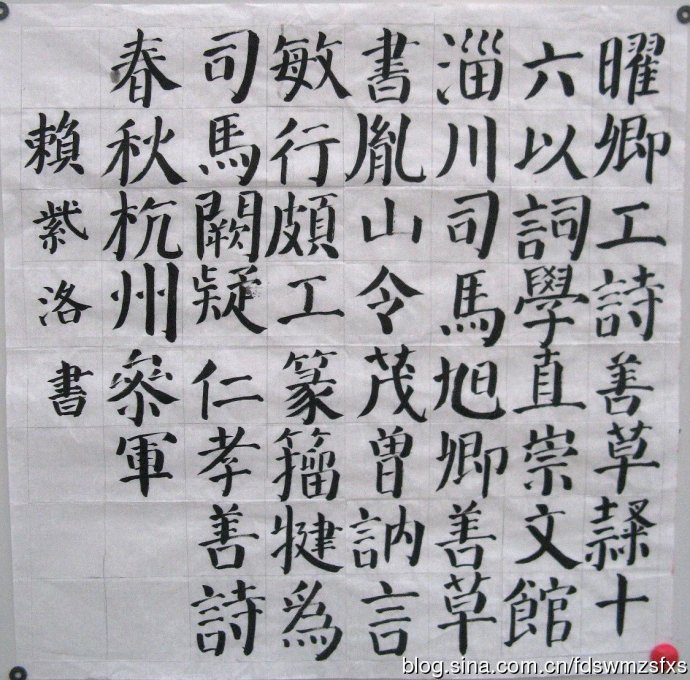 曜卿工詩善草隸十
六以詞學直崇文館
淄川司馬旭卿善草
書胤山令茂曾訥言
敏行頗工篆籀犍爲
司馬闕疑仁孝善詩
春秋杭州參軍
賴紫洛書
blog.sina.com.cn/fdswmzsfxs